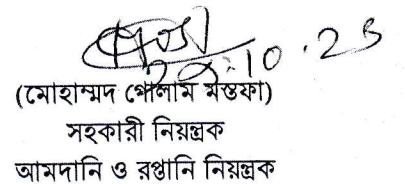 (মোহাম্মদ গোলাম মস্তফা)
সহকারী নিয়ন্ত্রক
আমদানি ও রপ্তানি নিয়ন্ত্রক